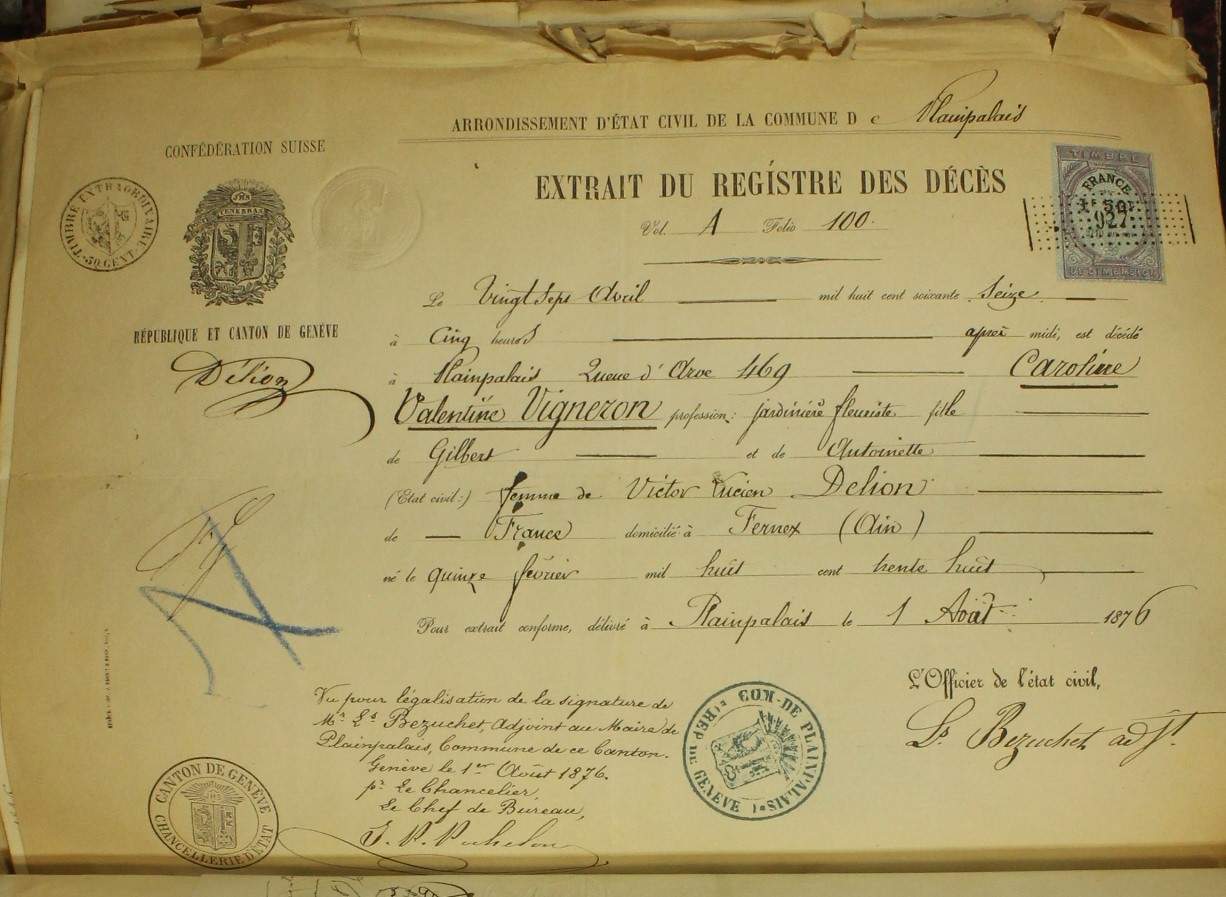 ARRONDISSEMENT D'ÉTAT CIVIL DE LA COMMUNE D e Plainpalais
CONFÉDÉRATION SUISSE
TIMBRE EXTRAORDINAIRE
50 CENT.
JHS
TENEBRAS
RÉPUBLIQUE ET CANTON DE GENÈVE
Délion
EXTRAIT DU REGISTRE DES DÉCÈS
Vol. A Folio 100.
TIMBRE
FRANCE
927
Le Vingt Sept Avril mil huit cent soixante Seize
à Cinq heures après midi, est décédé
à Plainpalais Queue d'Arve 469 Caroline
Valentine Vigneron profession: jardinière fleuriste fille
de Gilbert et de Antoinette
(Etat civil:) femme de Victor Lucien Delion
de France domicilié à Fernex (Ain)
né le quinze février mil huit cent trente huit
Pour extrait conforme, délivré à Plainpalais le 1 Août 1876
L'Officier de l'état civil,
Ls. Bezuchet adjt.
Vu pour légalisation de la signature de
Mr. Ls. Bezuchet, Adjoint au Maire de
Plainpalais, Commune de ce Canton.
Genève le 1er Août 1876.
pr. Le Chancelier,
Le Chef de Bureau,
COM. DE PLAINPALAIS
REP DE GENEVE
CANTON DE GENÈVE
CHANCELLERIE D'ÉTAT